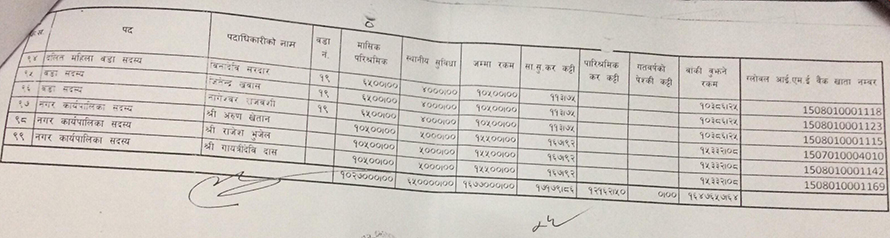 क्र.सं. पद पदाधिकारीको नाम वडा नं. मासिक परिश्रमिक स्थानीय सुविधा जम्मा रकम सा.सु.कर कट्टी पारिश्रमिक कर कट्टी गतवर्षको पेश्की कट्टी बाकी बुझ्ने रकम ग्लोबल आई.एम.ई बैंक खाता नम्बर
९४ दलित महिला वडा सदस्य बिनादेवि सरदार १९ ६५००।०० ४०००।०० १०५००।०० ११३।७५ १०३८६।२५ 1508010001118
९५ वडा सदस्य जितेन्द्र खवास १९ ६५००।०० ४०००।०० १०५००।०० ११३।७५ १०३८६।२५ 1508010001123
९६ वडा सदस्य नागेश्वर राजवंशी १९ ६५००।०० ४०००।०० १०५००।०० ११३।७५ १०३८६।२५ 1508010001115
९७ नगर कार्यपालिका सदस्य श्री अरुण खेतान १०५००।०० ५०००।०० १५५००।०० १६७।९२ १५३३२।०८ 1507010004010
९८ नगर कार्यपालिका सदस्य श्री राजेश भुजेल १०५००।०० ५०००।०० १५५००।०० १६७।९२ १५३३२।०८ 1508010001142
९९ नगर कार्यपालिका सदस्य श्री गायत्रीदेवि दास १०५००।०० ५०००।०० १५५००।०० १६७।९२ १५३३२।०८ 1508010001169
१०२७०००।०० ६५००००।०० १६७७०००।०० १७१७९।८६ १२१६२।५० ०।०० १६४७६५७।६४